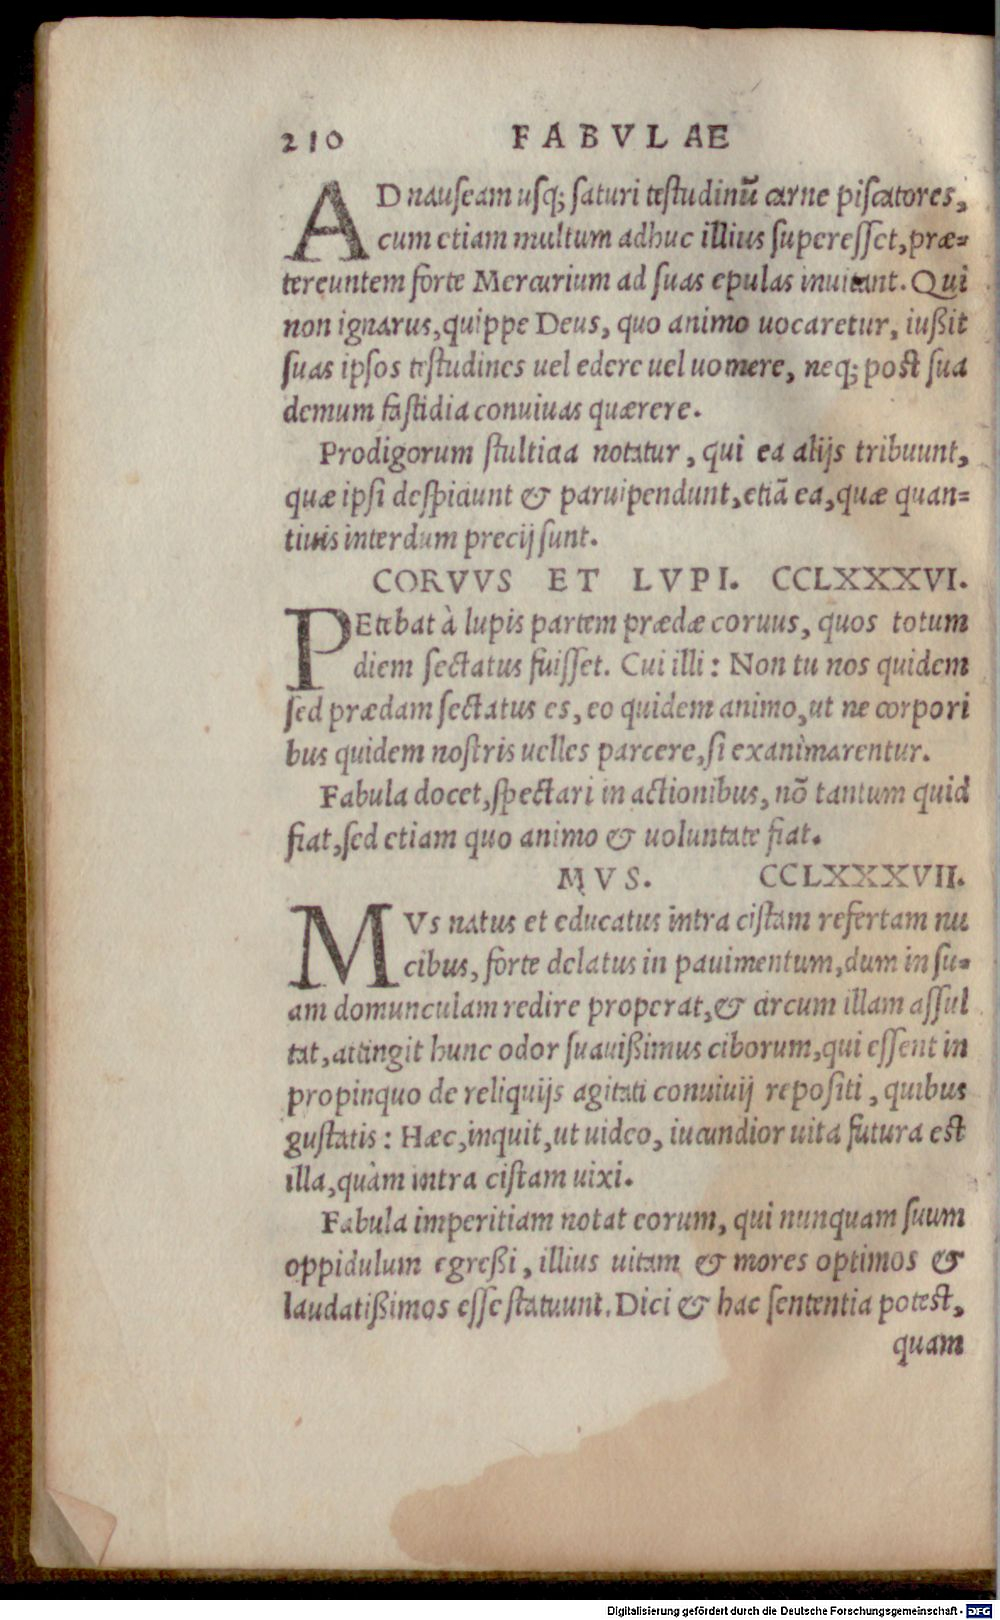 210 FABVLAE
AD nauſeam uſq; ſaturi teſtudinū carne piſcatores,
cum etiam multum adhuc illius ſupereſſet, præ-
tereuntem forte Mercurium ad ſuas epulas inuitant. Qui
non ignarus, quippe Deus, quo animo uocaretur, iußit
ſuas ipſos teſtudines uel edere uel uomere, neq; poſt ſua
demum faſtidia conuiuas quærere.
Prodigorum ſtulticia notatur, qui ea alijs tribuunt,
quæ ipſi deſpiciunt & paruipendunt, etiā ea, quæ quan-
tiuis interdum precij ſunt.
CORVVS ET LVPI. CCLXXXVI.
PEtebat à lupis partem prædæ coruus, quos totum
diem ſectatus fuiſſet. Cui illi: Non tu nos quidem
ſed prædam ſectatus es, eo quidem animo, ut ne corpori
bus quidem noſtris uelles parcere, ſi exanimarentur.
Fabula docet, ſpectari in actionibus, nō tantum quid
fiat, ſed etiam quo animo & uoluntate fiat.
MVS. CCLXXXVII.
MVs natus et educatus intra ciſtam refertam nu
cibus, forte delatus in pauimentum, dum in ſu-
am domunculam redire properat, & circum illam aſſul
tat, attingit hunc odor ſuauißimus ciborum, qui eſſent in
propinquo de reliquijs agitati conuiuij repoſiti, quibus
guſtatis: Hæc, inquit, ut uideo, iucundior uita futura eſt
illa, quàm intra ciſtam uixi.
Fabula imperitiam notat eorum, qui nunquam ſuum
oppidulum egreßi, illius uitam & mores optimos &
laudatißimos eſſe ſtatuunt. Dici & hac ſententia poteſt,
quam
Digitalisierung gefördert durch die Deutsche Forschungsgemeinschaft - DFG